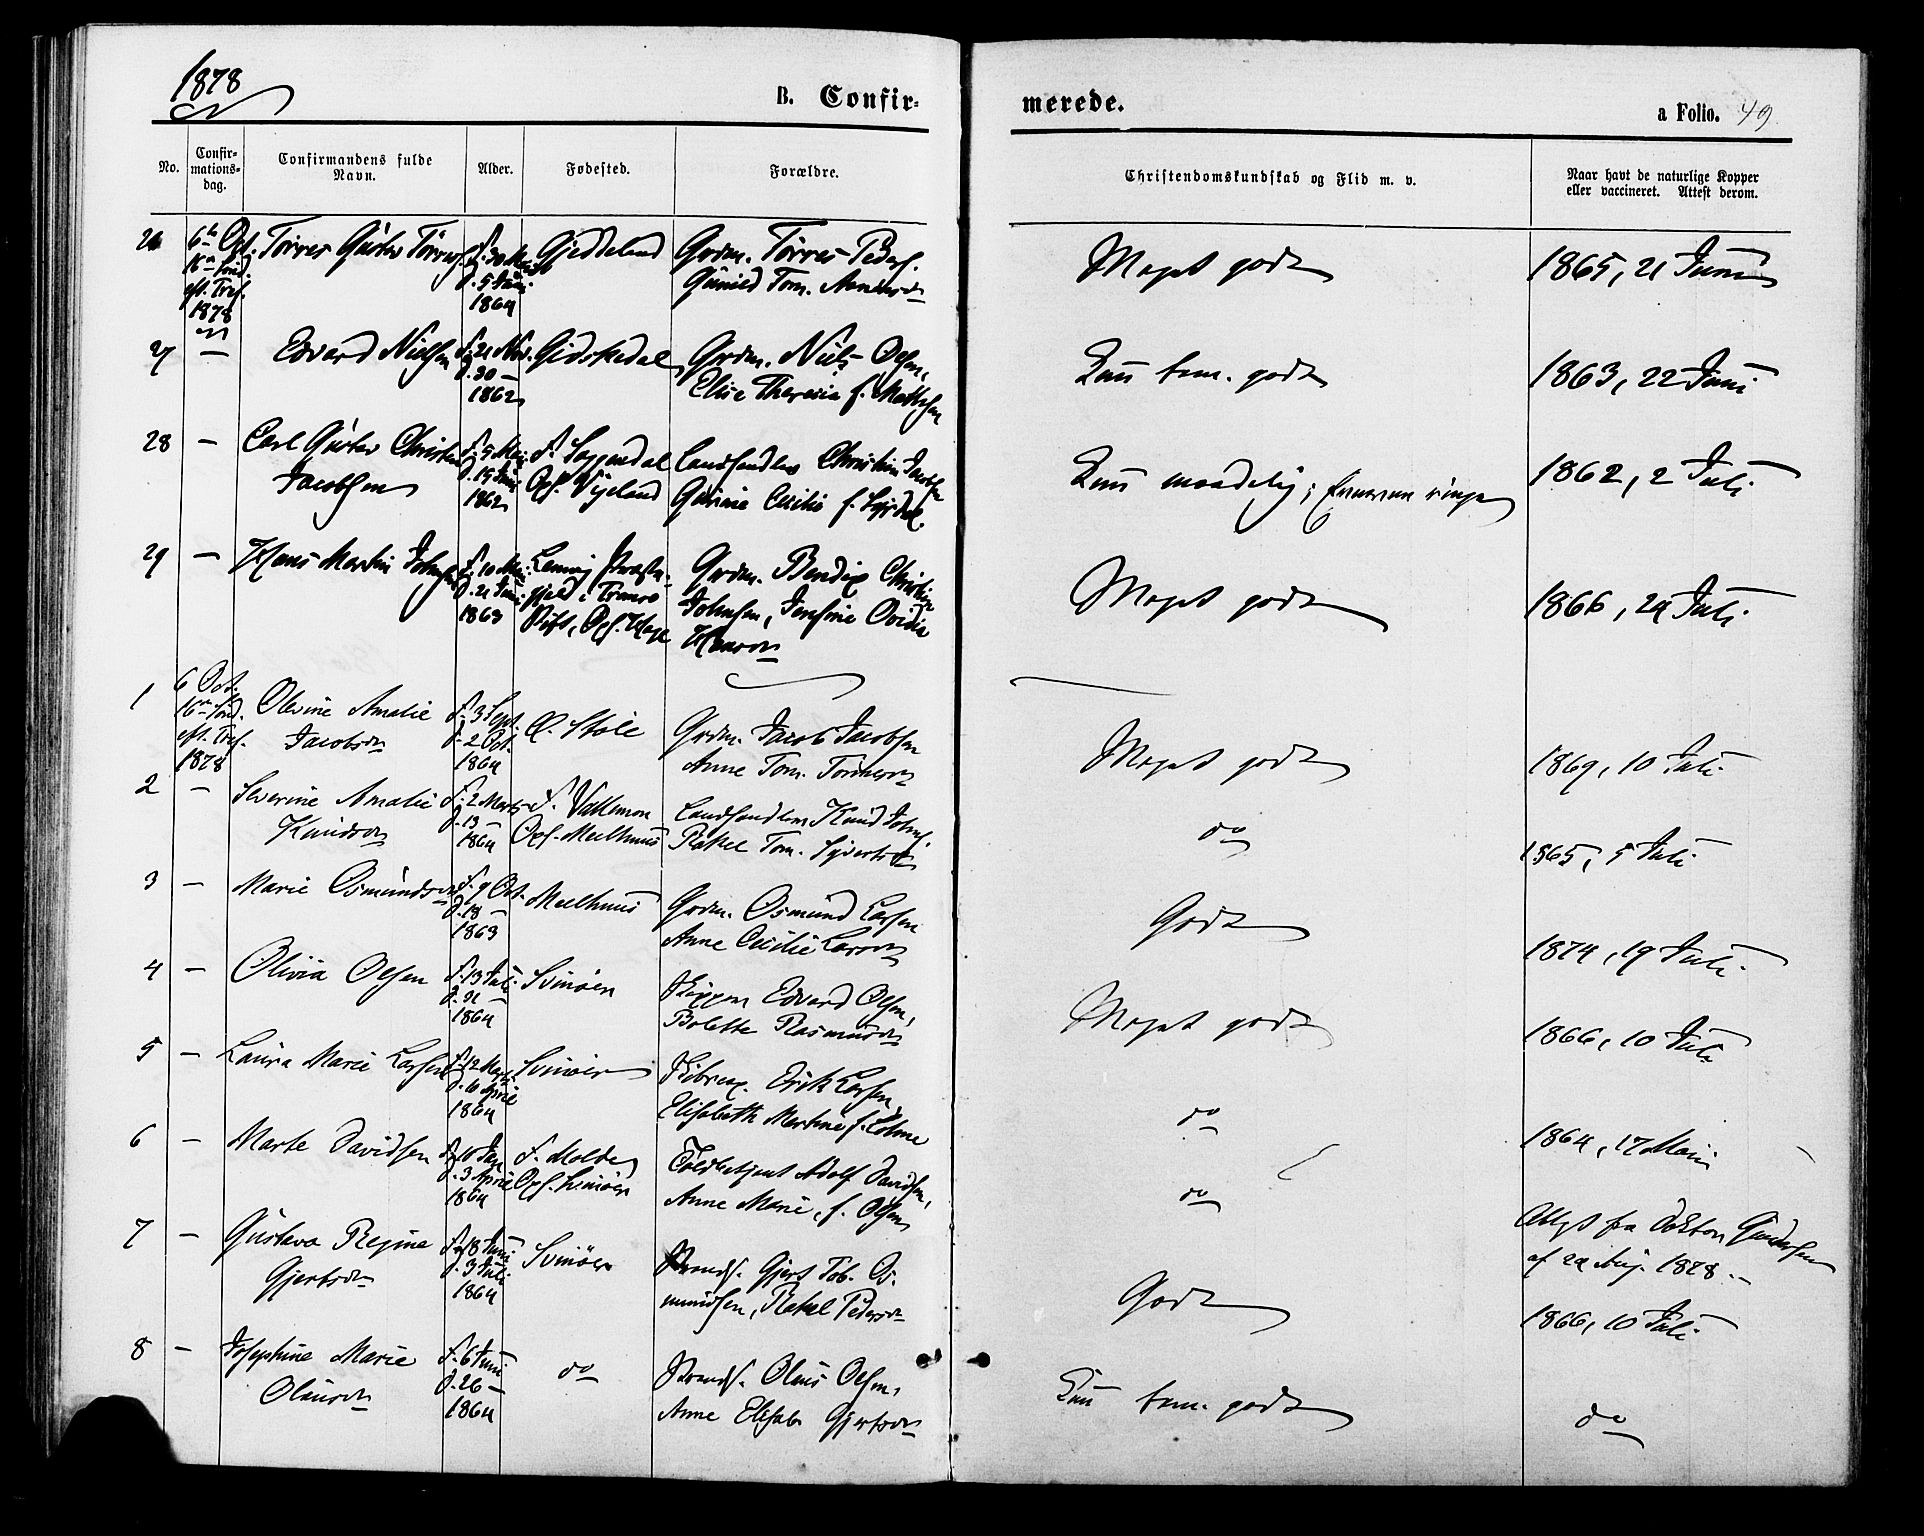 1878
B. Confir-
merede.
a Folio. 49
No.
Confir-
mations-
dag.
Confirmandens fulde
Navn.
Alder.
Fødested.
Forældre.
Christendomskundskab og Flid m. v.
Naar havt de naturlige Kopper
eller vaccineret. Attest derom.
26
6te Oct.
16de Sønd.
eft. Tref.
1878
Tørres Gustav Tørres
d. 5 Juni
1864
Gjeddeland
Grdm. Tørres Peders.
Gunild Tom.
Meget godt
1865, 21 Juni
27 —
Edvard Nielsen
f. 21 Nov.
d. 30 —
1862
Gidskedal
Grdm. Niels Olsen,
Elise Theresia f. Mathsen
Kun tem. godt
1863, 22 Juni
28 —
Carl Gustav Christian
Jacobsen
f. 9 Mai
d. 19 Juni
1862
f. Soggendal
Opf. Vigeland
Landhandler Christian Jacobsen
Gurine Cecilie f. Syrdal
Kun maadelig; Evnerne ringe
1862, 2 Juli
29 —
Hans Martin Johnsen
f. 10 Mai
d. 21 Juni
1863
Lenvig Præste-
gjeld i Tromsø
Stift, Opf. Hage
Grdm. Bendix Christian
Johnsen, Josefine Ovidia
Hansdn
Meget godt
1866, 29 Juli
1
6 Oct.
16de Sønd.
eft. Tref.
1878
Olevine Amalie
Jacobsdn
f. 3 Sept.
d. 2 Oct.
1864
Ø. Støle
Grdm. Jacob Jacobsen
Anne Tom. Tønnesdn
Meget godt
1869, 10 Juli
2 —
Severine Amalie
Knudsdn
f. 2 Marts
d. 13 —
1864
f. Vallemon
Opf. Meelhuus
Landhandler Knud Johns.
Rakel Tom. Syvertsdn
do
1865, 5 Juli
3 —
Marie Osmundsdn
f. 9 Oct.
d. 18 —
1863
Meelhuus
Grdm. Osmund Larsen
Anne Cecilie Larsdn
Godt
1874, 19 Juli
4 —
Olivia Olsen
f. 13 Juli
d. 31 —
1864
Svinøer
Skipper Edvard Olsen,
Bolette Rasmusdn
Meget godt
1866, 10 Juli
5 —
Laura Marie Larsen
f. 12 Marts
d. 10 April
1864
Svinøer
Skibrex. Erik Larsen,
Elisabeth Martine f. Lohne
do
1864, 17 Mai
6 —
Marte Davidsen
f. 10 Jan
d. 3 April
1864
f. Molde
Opf. Svinøer
Toldbetjent Adolf Davidsen,
Anne Marie, f. Olsen
do
Attest fra Doktor Gundersen
af 29 Aug. 1878.
7 —
Gustava Regine
Gjertsdn
f. 18 Juni
d. 3 Juli
1864
Svinøer
Strands. Gjert Tob. Os-
mundsen, Rakel Pedersdn
Godt
1866, 10 Juli
8 —
Josephine Marie
Olausdn
f. 6 Juni
d. 26 —
1864
do
Strands. Olaus Olsen,
Anne Elisab. Gjertsdn
Kun tem. godt
do